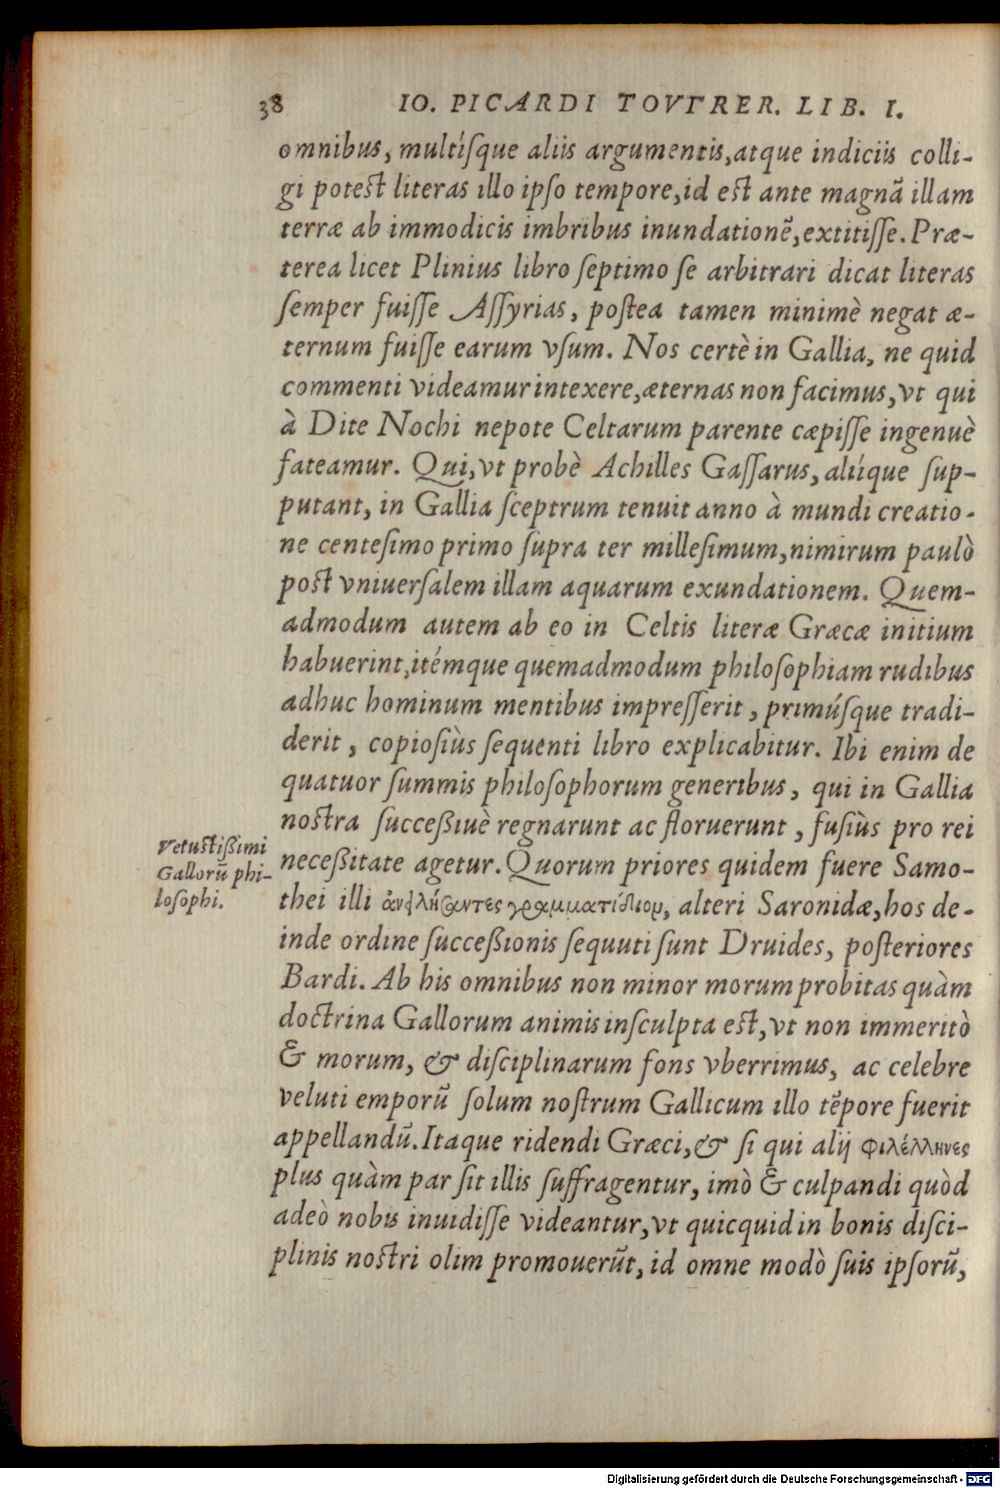 38 IO. PICARDI TOVTRER. LIB. I.
omnibus, multíſque aliis argumentis, atque indiciis colli-
gi poteſt literas illo ipſo tempore, id eſt ante magnã illam
terræ ab immodicis imbribus inundationẽ, extitiſſe. Præ-
terea licet Plinius libro ſeptimo ſe arbitrari dicat literas
ſemper fuiſſe Aſſyrias, poſtea tamen minimè negat æ-
ternum fuiſſe earum vſum. Nos certè in Gallia, ne quid
commenti videamur intexere, æternas non facimus, vt qui
à Dite Nochi nepote Celtarum parente cæpiſſe ingenuè
fateamur. Qui, vt probè Achilles Gaſſarus, aliíque ſup-
putant, in Gallia ſceptrum tenuit anno à mundi creatio-
ne centeſimo primo ſupra ter milleſimum, nimirum paulò
poſt vniuerſalem illam aquarum exundationem. Quem-
admodum autem ab eo in Celtis literæ Græcæ initium
habuerint, itémque quemadmodum philoſophiam rudibus
adhuc hominum mentibus impreſſerit, primúſque tradi-
derit, copioſiùs ſequenti libro explicabitur. Ibi enim de
quatuor ſummis philoſophorum generibus, qui in Gallia
noſtra ſucceßiuè regnarunt ac floruerunt, fuſiùs pro rei
neceßitate agetur. Quorum priores quidem fuere Samo-
thei illi γραμματιδίου, alteri Saronidæ, hos de-
inde ordine ſucceßionis ſequuti ſunt Druides, poſteriores
Bardi. Ab his omnibus non minor morum probitas quàm
doctrina Gallorum animis inſculpta eſt, vt non immeritò
& morum, & diſciplinarum fons vberrimus, ac celebre
veluti emporũ ſolum noſtrum Gallicum illo tẽpore fuerit
appellandũ. Itaque ridendi Græci, & ſi qui alij φιλέλληνες
plus quàm par ſit illis ſuffragentur, imò & culpandi quòd
adeò nobis inuidiſſe videantur, vt quicquid in bonis diſci-
plinis noſtri olim promouerũt, id omne modò ſuis ipſorũ,
Vetuſtißimi
Gallorũ phi-
loſophi.
Digitalisierung gefördert durch die Deutsche Forschungsgemeinschaft - DFG